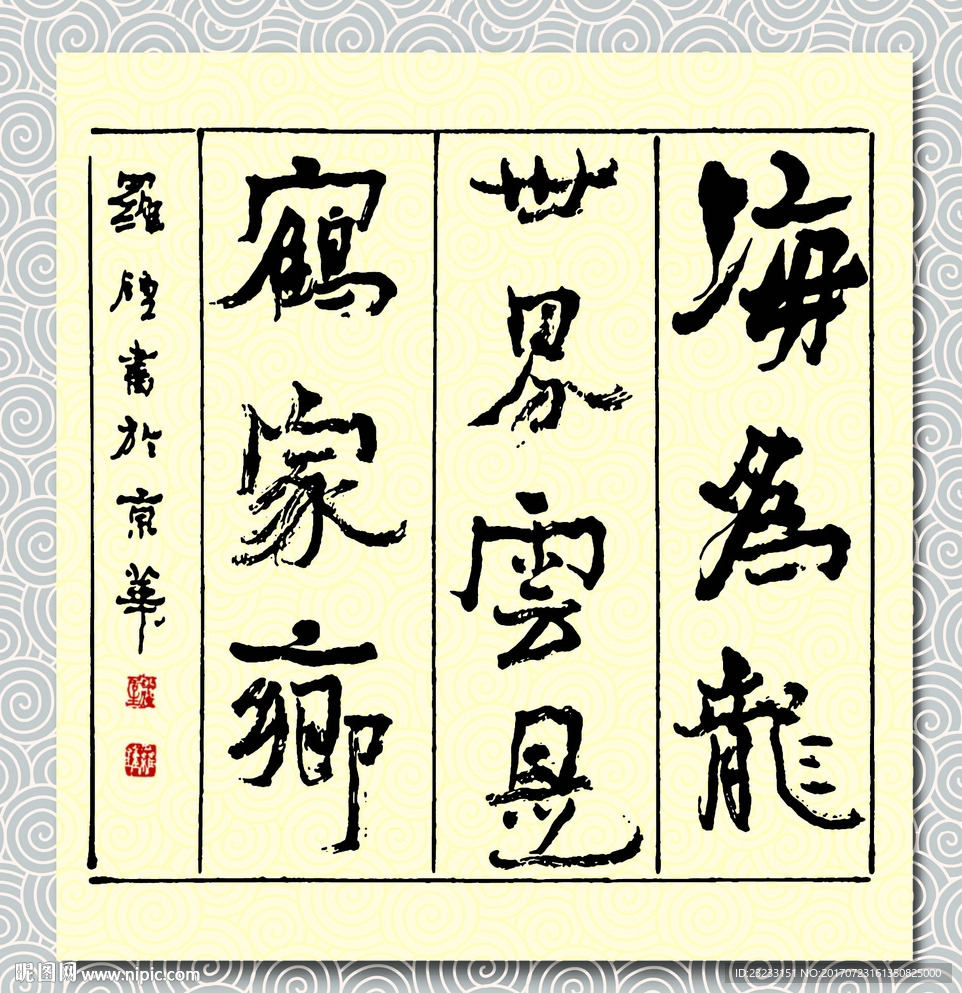 海為龍
世界雲是
鶴家鄉
羅 書於京華
昵图网 www.nipic.com
ID:23233151 NO:20170723161350825000